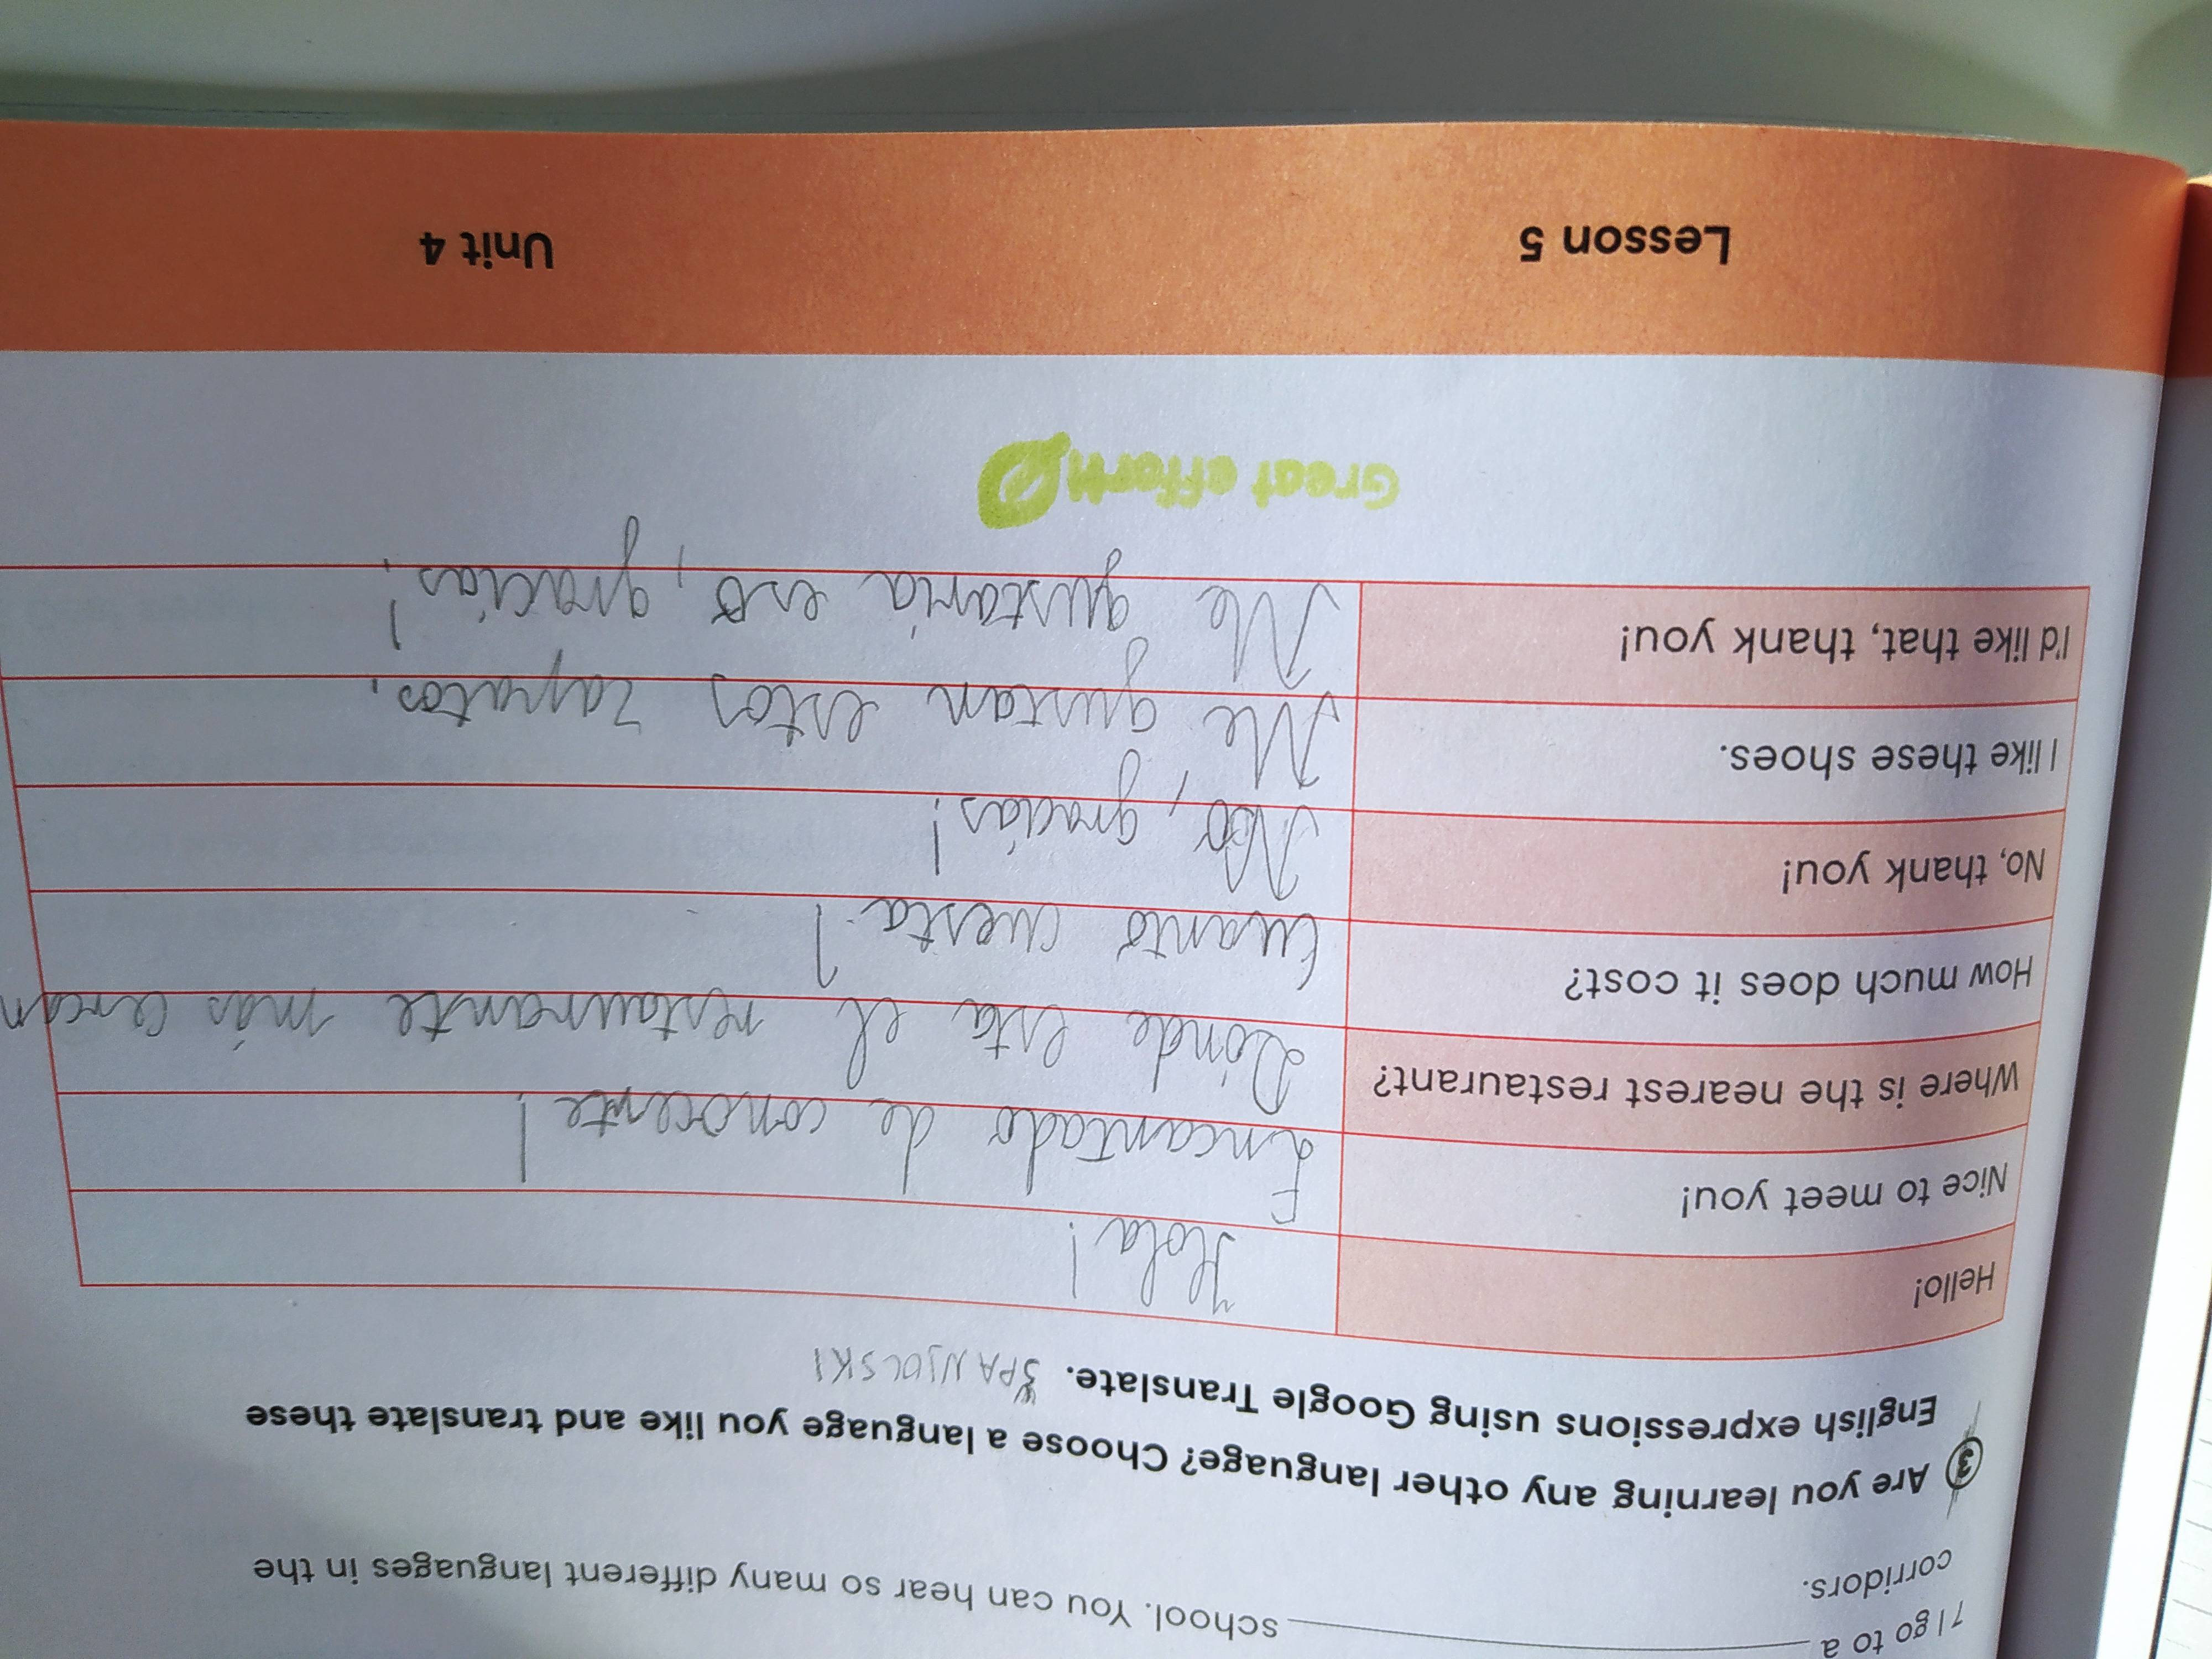 7 I go to a ____ school. You can hear so many different languages in the
corridors.
3 Are you learning any other language? Choose a language you like and translate these
English expressions using Google Translate. ŠPANJOLSKI
Hello! Hola!
Nice to meet you! Encantado de conocerte!
Where is the nearest restaurant? Dónde esta el restaurante más cercan
How much does it cost? Cuanto cuesta?
No, thank you! No, gracias!
I like these shoes. Me gustan estos zapatos.
I'd like that, thank you! Me gustaria eso, gracias!
Great effort!
Lesson 5
Unit 4